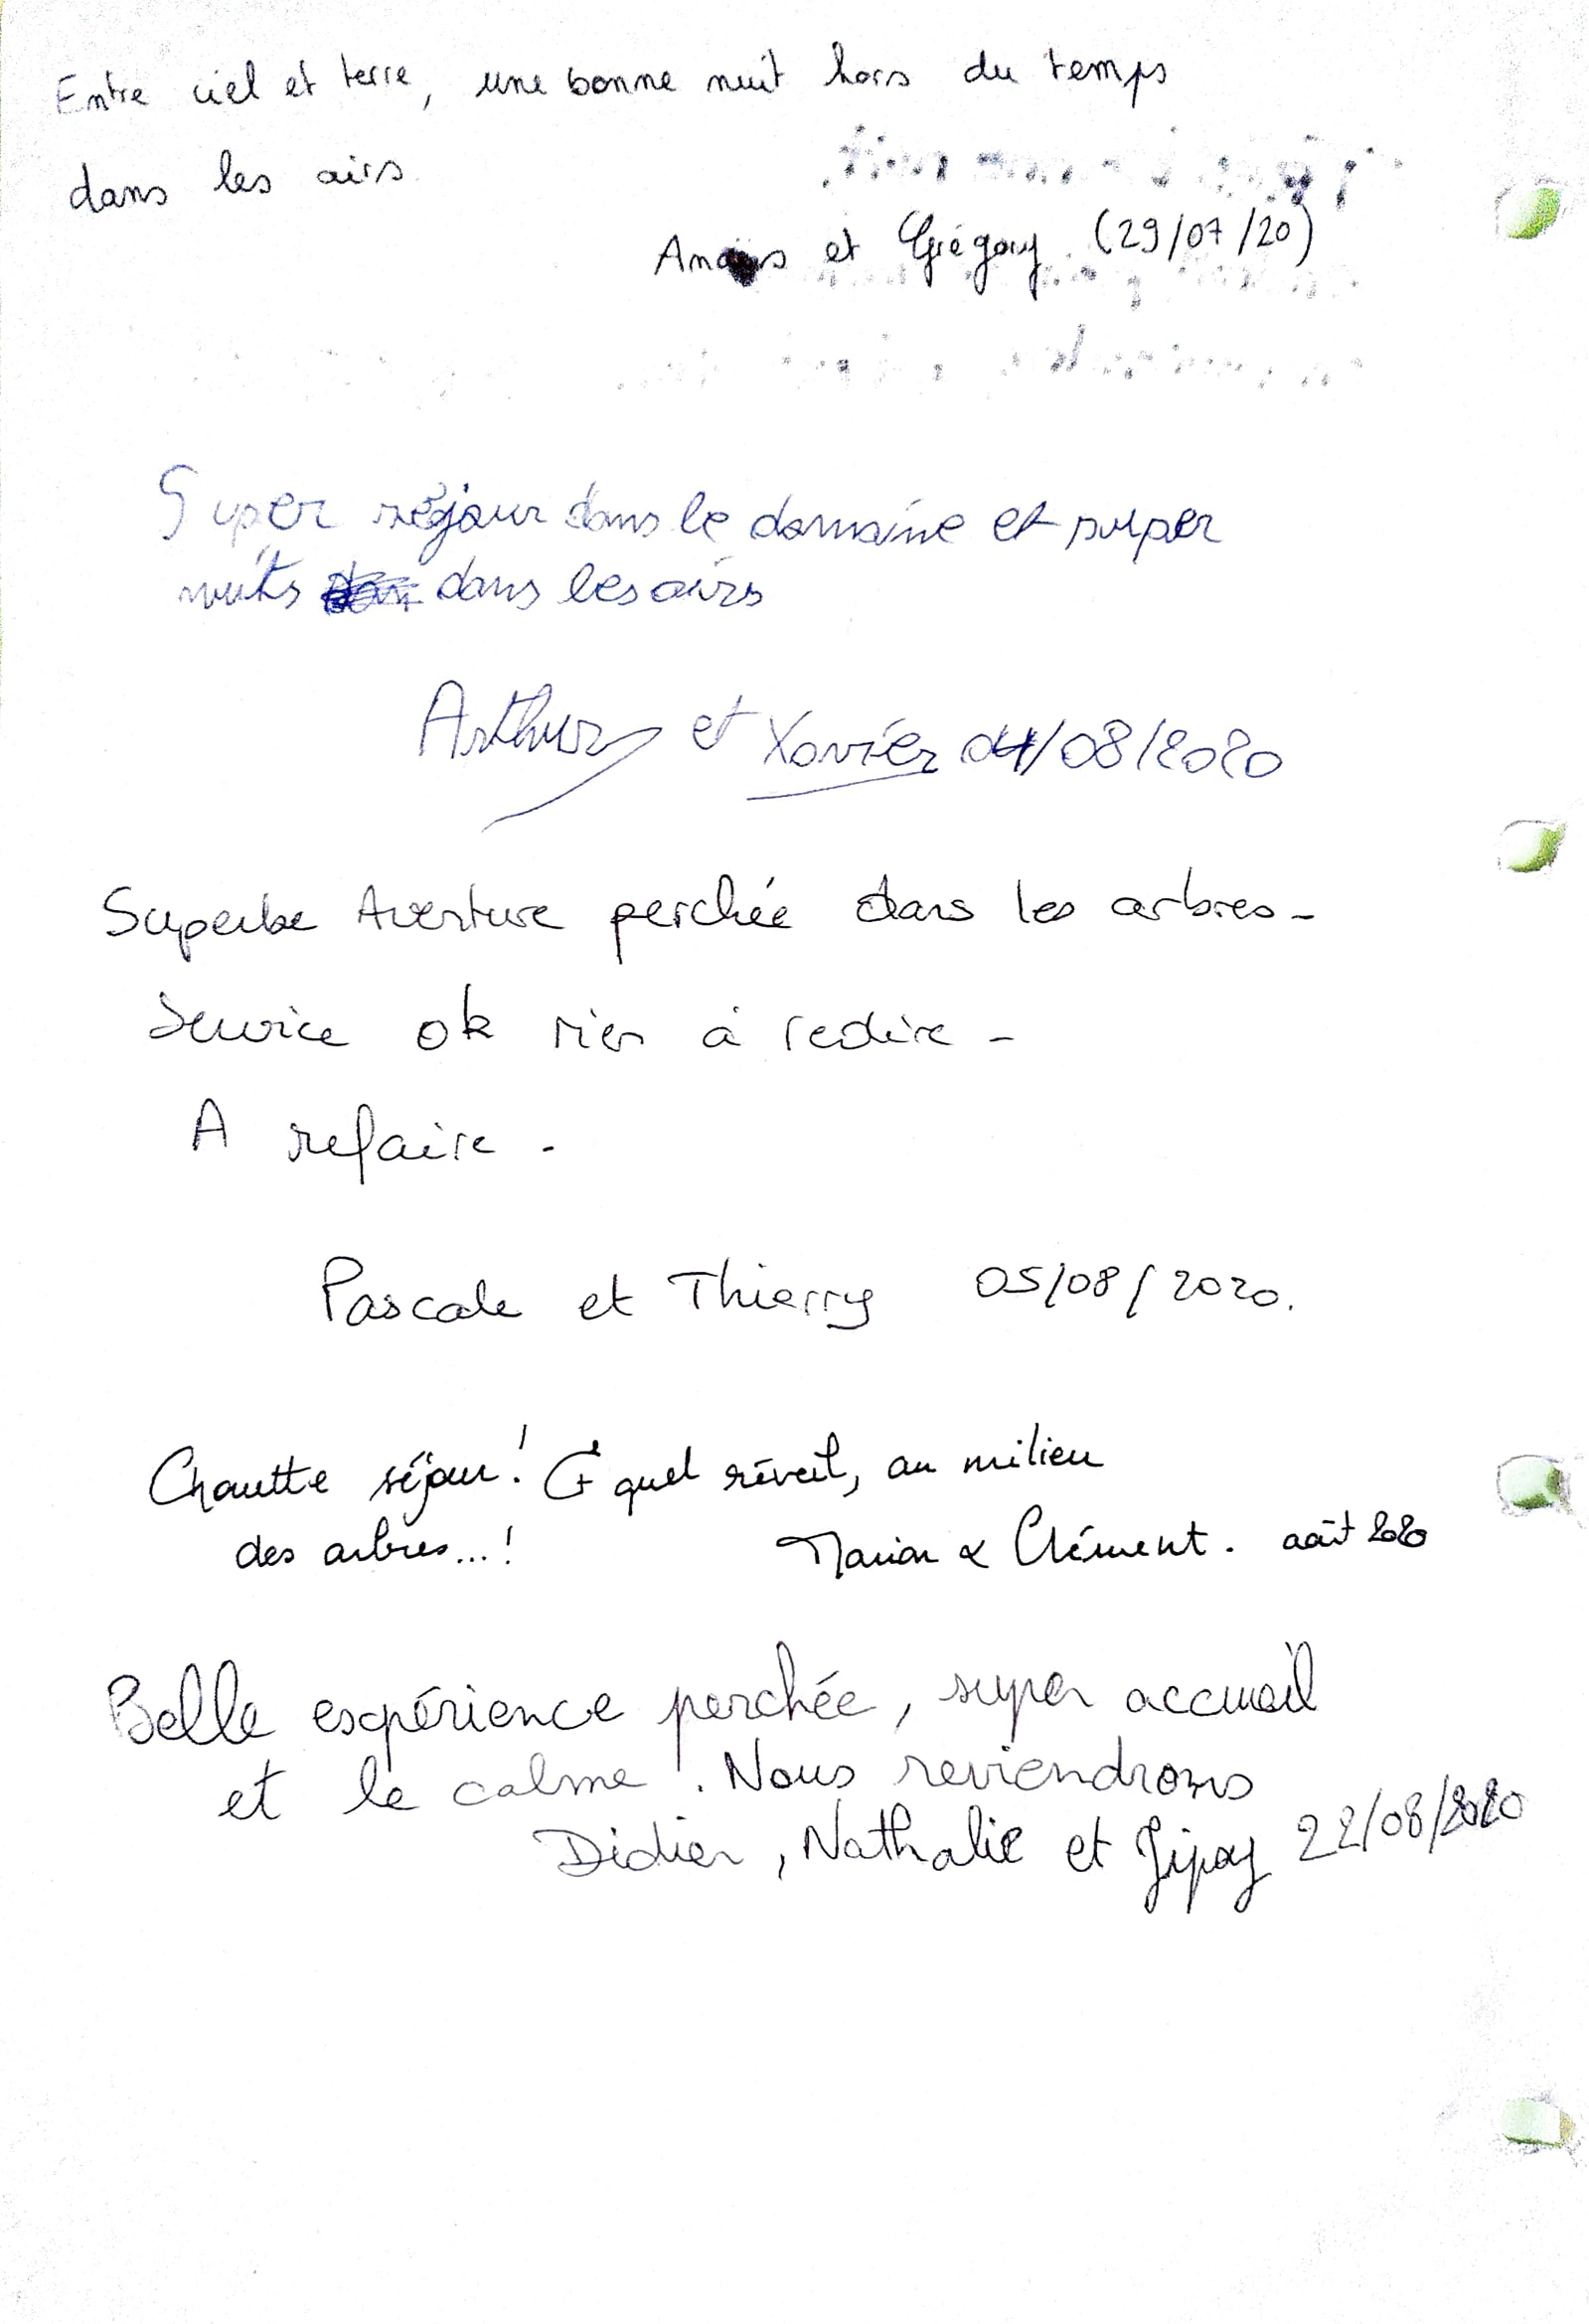 Entre ciel et terre, une bonne nuit hors du temps
dans les airs.
et Grégory. (29/07/20)
Super séjour dans le domaine et super
nuits dans les airs
Arthur et Xavier 04/08/2020
Superbe Aventure perchée dans les arbres -
Service ok rien à redire -
A refaire -
Pascale et Thierry 05/08/2020.
Chouette séjour! Et quel réveil, au milieu
des arbres...! Marion & Clément. août 2020
Belle expérience perchée, super accueil
et le calme ! Nous reviendrons
Didier, Nathalie et 22/08/2020